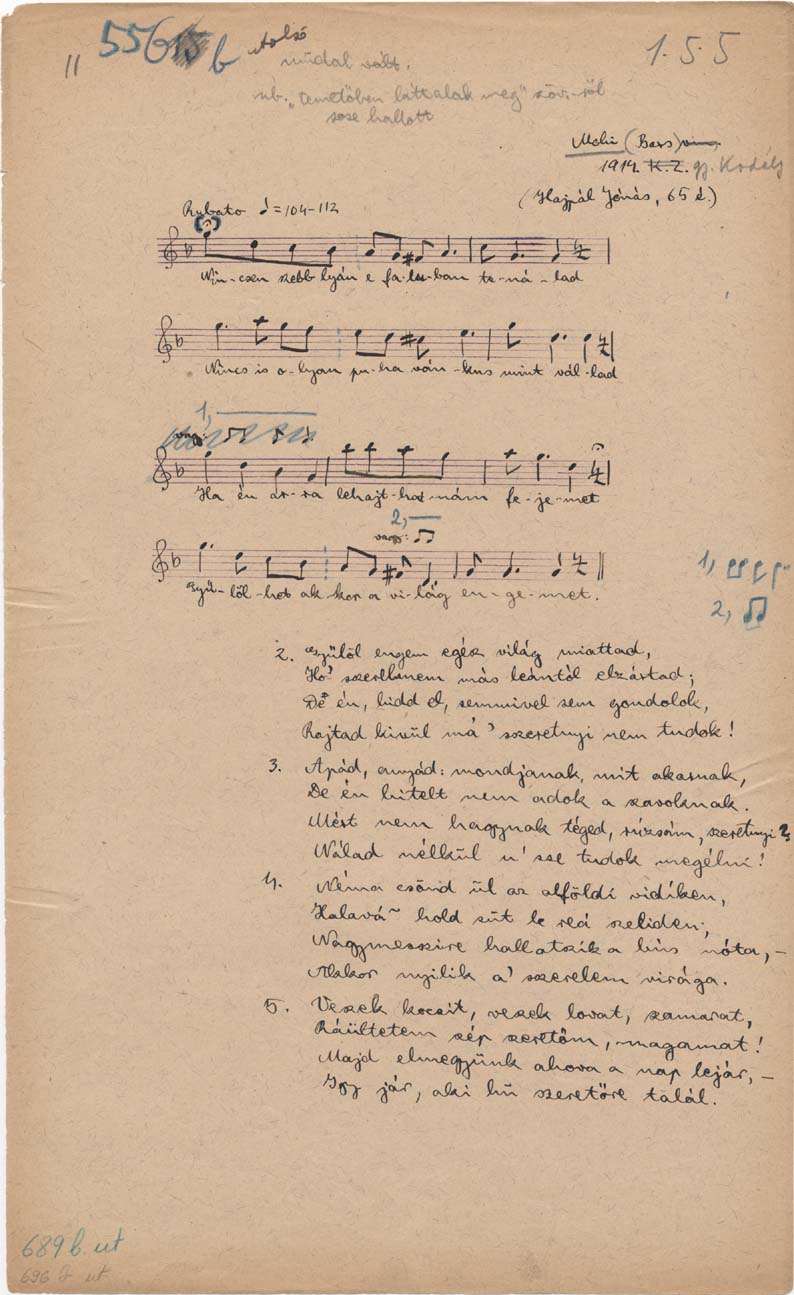 11 5565 b utolsó 1.5.5
műdal vált.
nb. „temetőben láttalak meg" szöv.-ről
sose hallott
Mohi (Bars) vm.
1914. K.Z. gy. Kodály
(Hajpál Jónás, 65 é.)
Rubato ♩=104-112
Nin-csen szebb lyán e fa-lu-ban te-ná-lad
Nincs is o-lyan pu-ha ván-kus mint vál-lad
1,
vagy:
Ha én ar-ra lehajt-hat-nám fe-je-met
2,
vagy:
Gyű-löl-het ak kor a vi-lág en-ge-met.
1,
2,
2. Gyűlöl engem egész világ miattad,
Hő' szerelmem más leántól elzártad;
De én, hidd el, semmivel sem gondolok,
Rajtad kivül má' szeretnyi nem tudok!
3. Apád, anyád: mondjanak, mit akarnak,
De én hitelt nem adok a szavoknak.
Mért nem hagynak téged, rúzsám, szeretnyi?
Nálad nélkül u' sse tudok megélni!
4. Néma csönd ül az alföldi vidíken,
Halavá~ hold süt le reá szeliden;
Nagymesszire hallatszik a bús nóta,-
Akkor nyilik a' szerelem virága.
5. Veszek kocsit, veszek lovat, szamarat,
Ráültetem szép szeretőm, magamat!
Majd elmegyünk ahova a nap lejár,-
Igy jár, aki hű szeretőre talál.
689 b. ut
696 ut